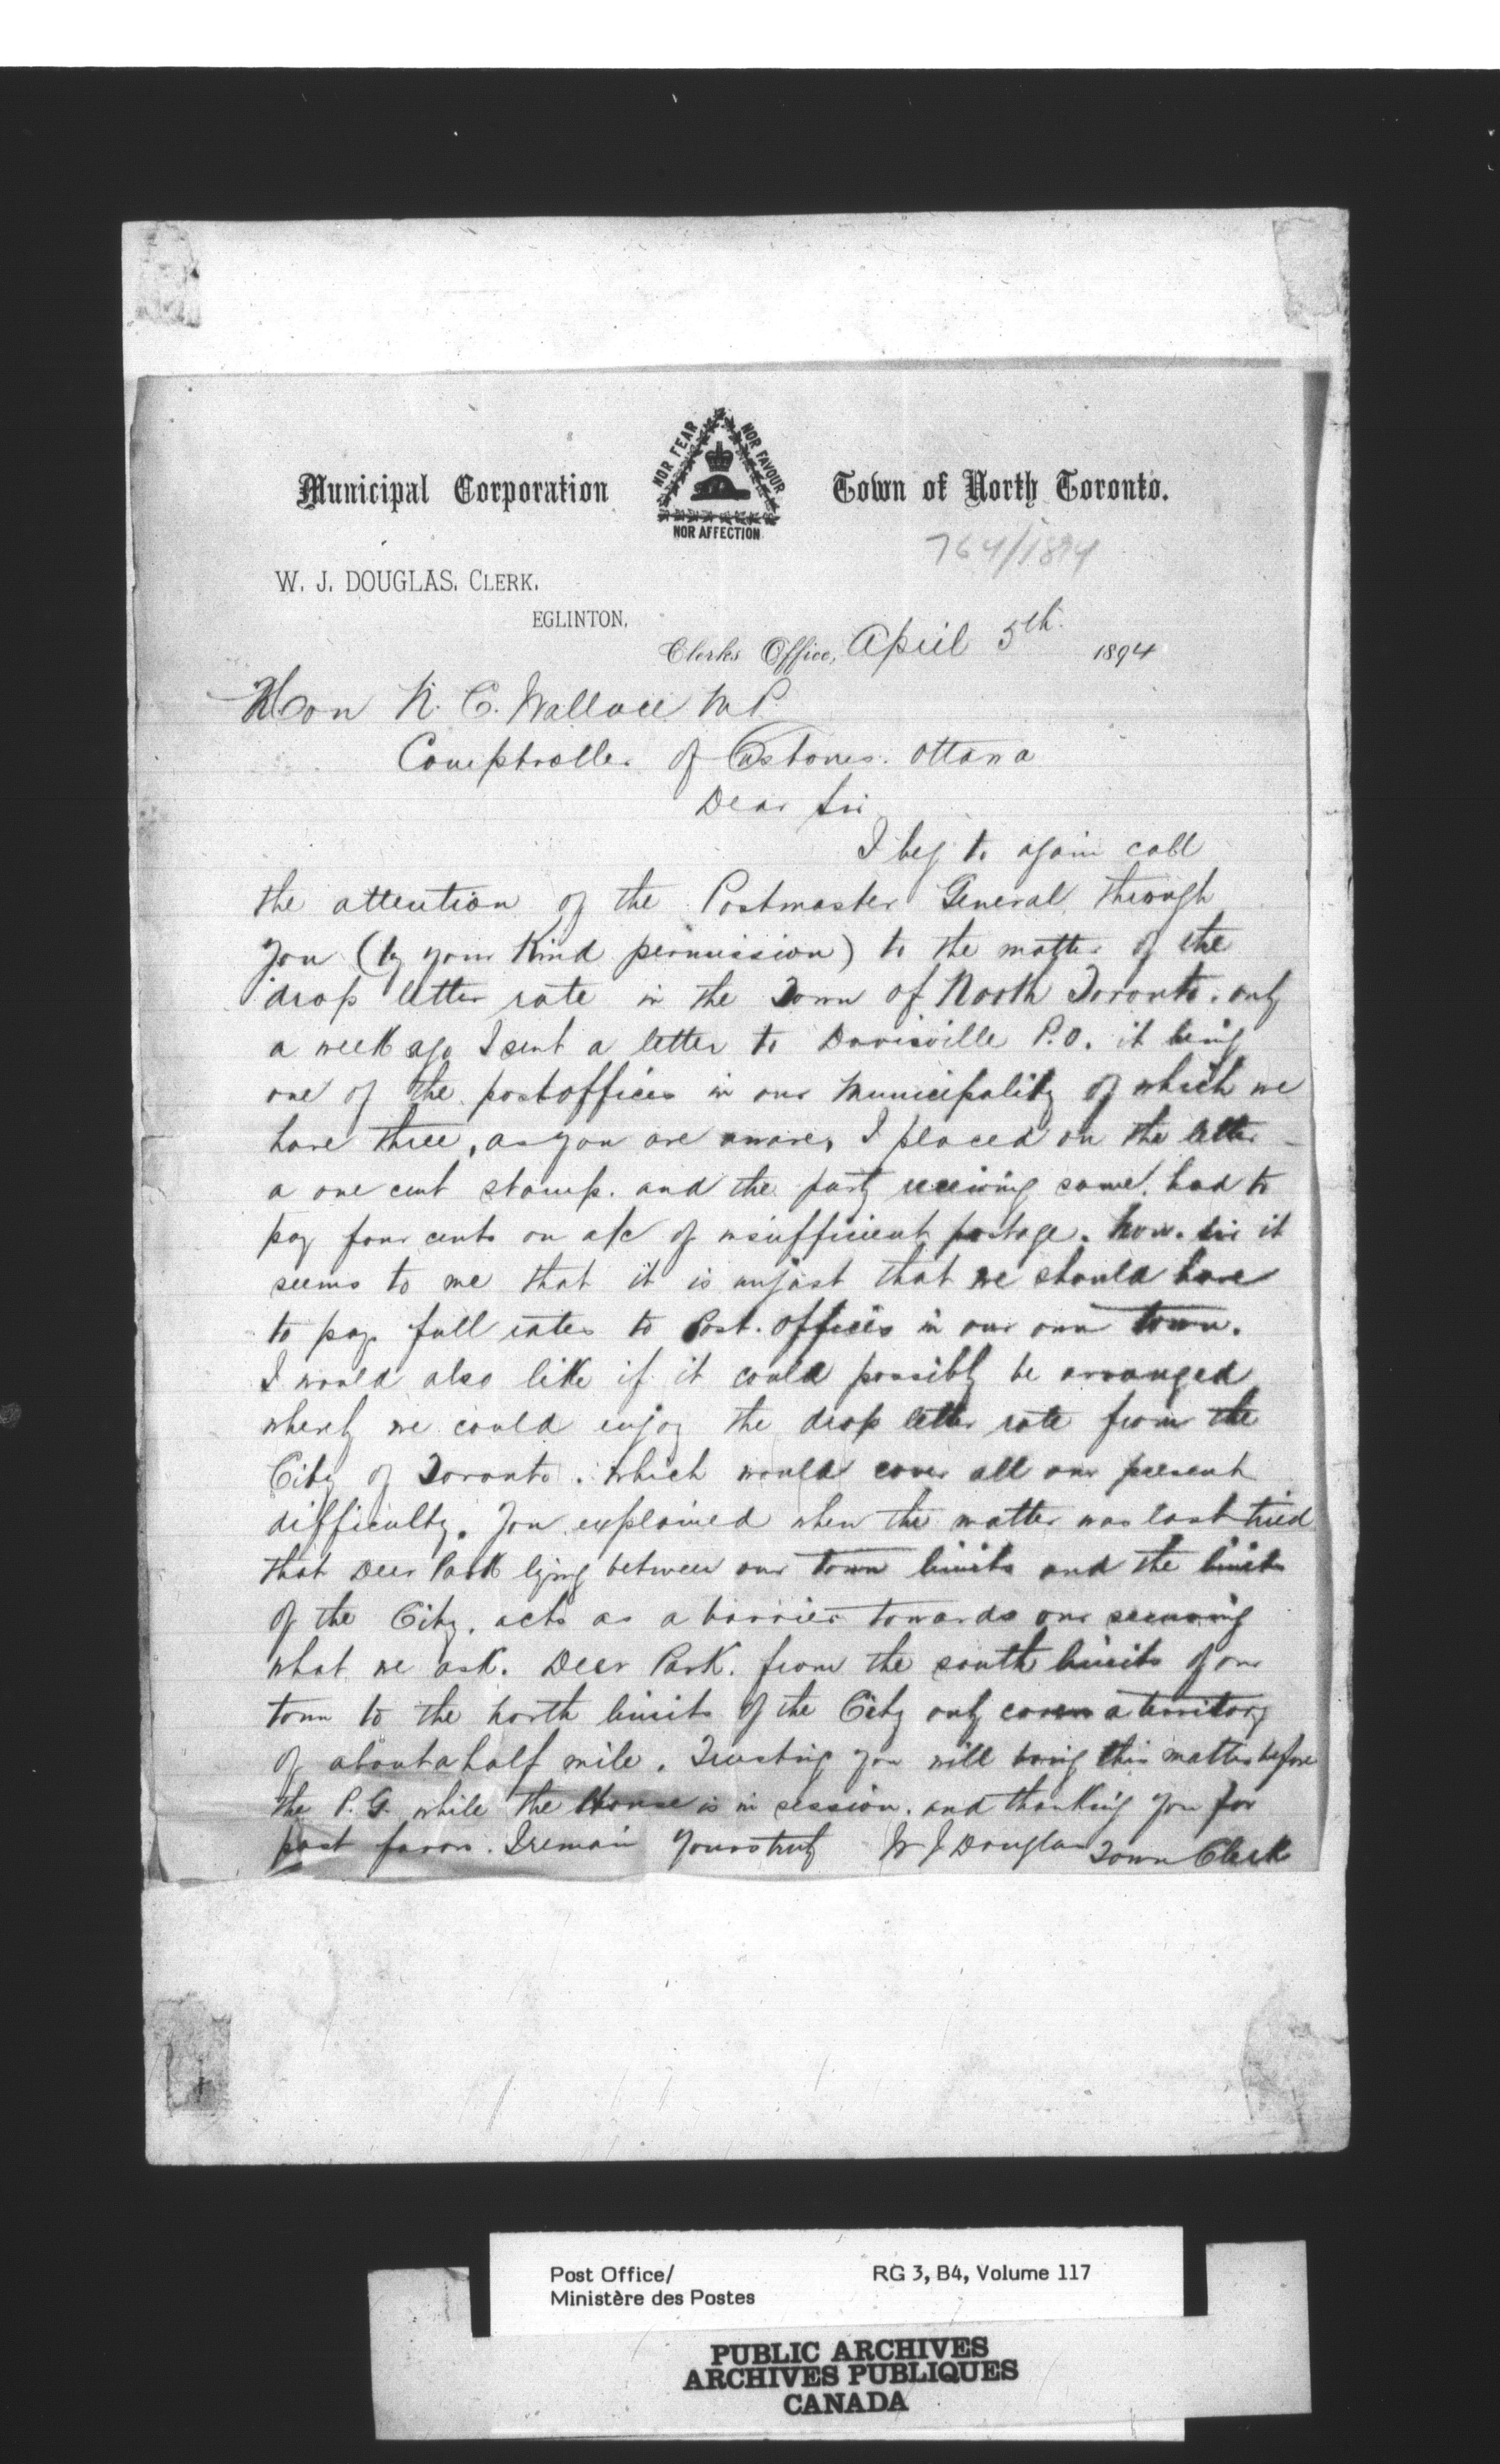 NOR FEAR
NOR FAVOUR
NOR AFFECTION
Municipal Corporation
Town of North Toronto.
764/1894
W. J. DOUGLAS, CLERK.
EGLINTON,
Clerks Office, April 5th 1894
Hon N. C. Wallace M.P.
Comptroller of Customs. Ottawa
Dear Sir
I beg to again call
the attention of the Postmaster General through
you (by your Kind permission) to the matter of the
drop letter rate in the Town of North Toronto. only
a week ago I sent a letter to Davisville P.O. it being
one of the postoffices in our Municipality of which we
have three, as you are aware, I placed on the letter
a one cent stamp. and the party receiving same, had to
pay four cents on a/c of insufficient postage. Now. Sir it
seems to me that it is unjust that we should have
to pay full rates to Post. offices in our own town.
I would also like if it could possibly be arranged
whereby we could enjoy the drop letter rate from the
City of Toronto. which would cover all our present
difficulty. You explained when the matter was last tried
that Deer Park lying between our town limits and the limits
of the City. acts as a barrier towards our securing
what we ask. Deer Park. from the south limits of our
town to the north limits of the City only covers a territory
of about a half mile. Trusting you will bring this matter before
the P.G. while the House is in session. and thanking you for
past favors. I remain Yours truly W J Douglas Town Clerk
Post Office/
Ministère des Postes
RG 3, B4, Volume 117
PUBLIC ARCHIVES
ARCHIVES PUBLIQUES
CANADA